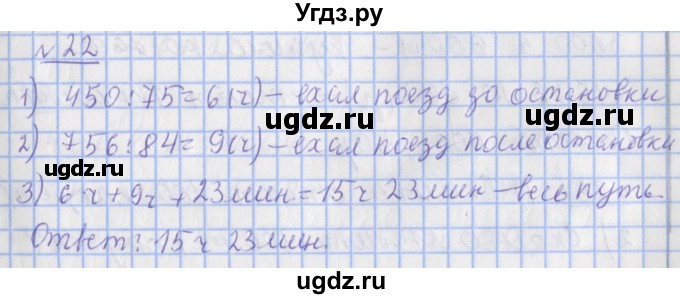 Угдз.ру
№ 22
1) 450:75=6(ч) – ехал поезд до остановки
ugdz.ru
ugdz.ru
2) 756:84=9(ч) – ехал поезд после остановки
ugdz.ru
ugdz.ru
3) 6ч+9ч+23мин=15ч 23мин – весь путь.
Ответ: 15ч 23мин.
ugdz.ru
ugdz.ru